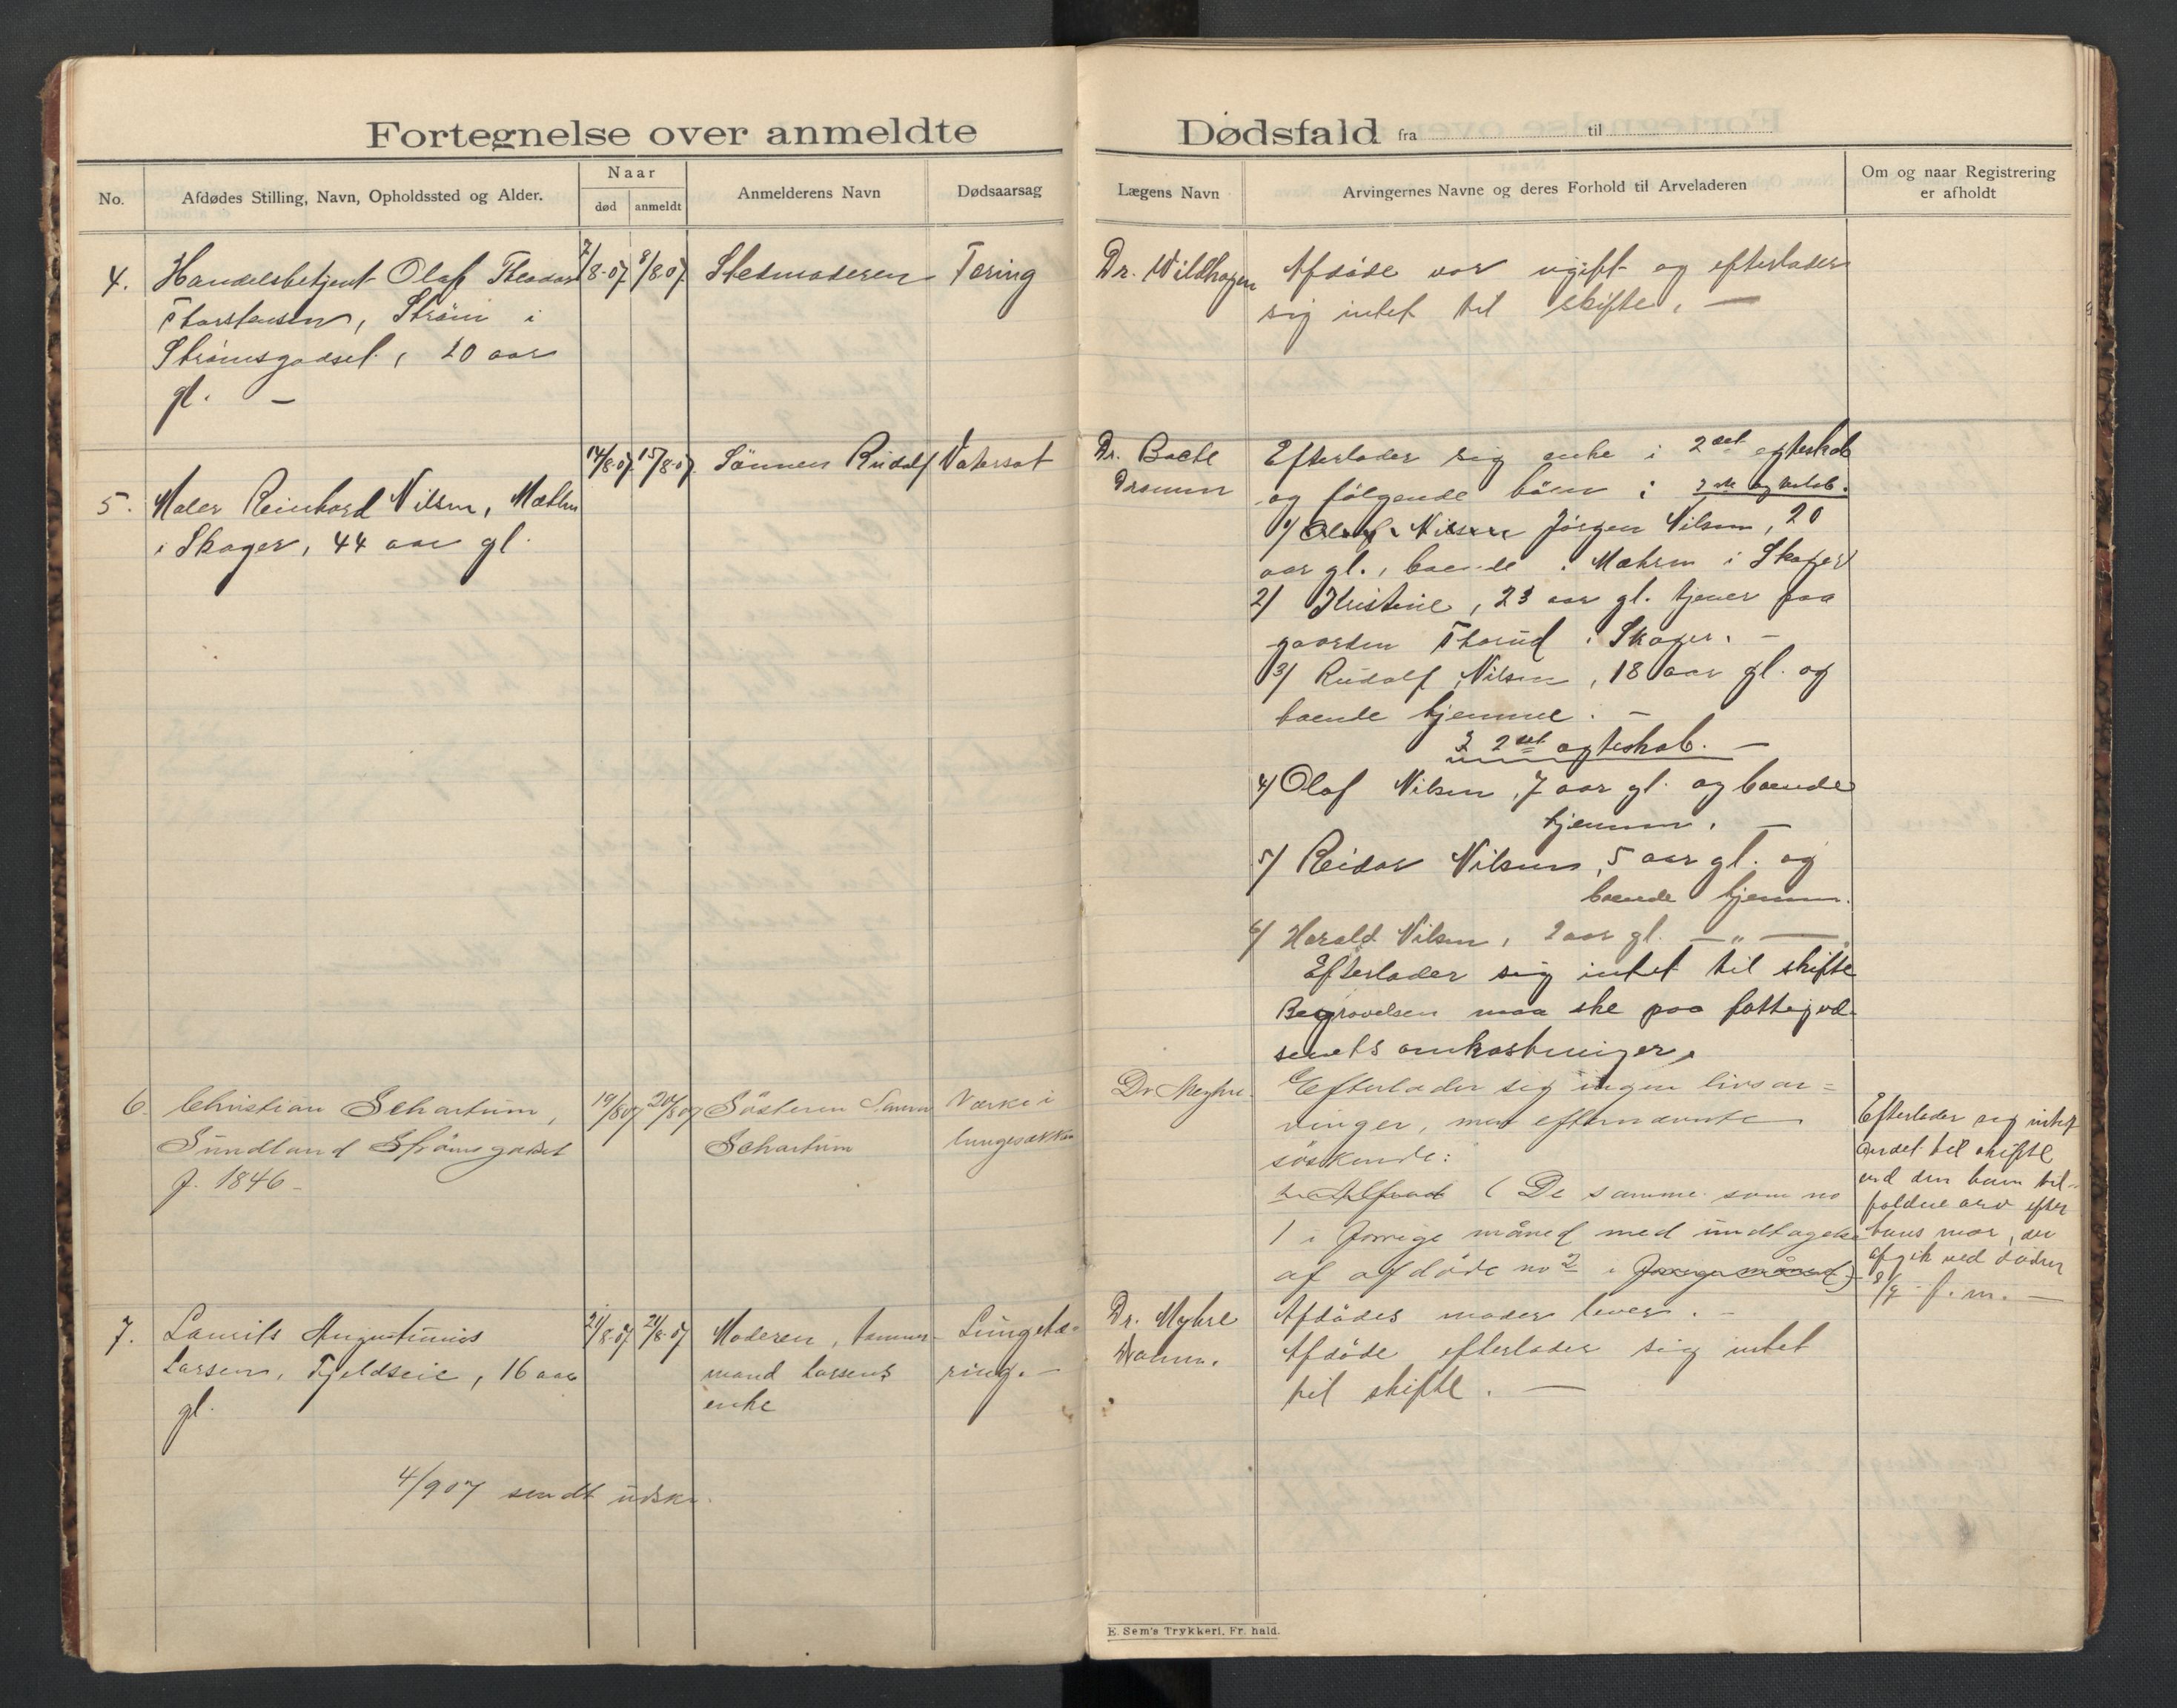 Fortegnelse over anmeldte Dødsfald fra til
No.
Afdødes Stilling, Navn, Opholdssted og Alder.
Naar
død
anmeldt
Anmelderens Navn
Dødsaarsag
Lægens Navn
Arvingernes Navne og deres Forhold til Arveladeren
Om og naar Registrering
er afholdt
4.
Handelsbetjent Olaf Theodor
Thorstensen, Strøm i
Strømsgodset, 20 aar
gl. —
7/8-07.
8/8 07.
Stedmoderen
Tæring
Dr. Wildhagen
Afdøde var ugift og efterlader
sig intet til skifte. —
5.
Maler Reinhard Nilsen, Mæhlen
i Skoger, 44 aar gl.
14/8-07.
15/8-07.
Sønnen Rudolf
Vatersot
Dr. Bache
Drammen
Efterlader sig enke i 2det egteskab
og følgende børn i 1ste egteskab.
1/ Olaf Nilsen Jørgen Nilsen, 20
aar gl., boende i Mæhren i Skoger
2/ Kristine, 23 aar gl. tjener paa
gaarden Thorud i Skoger. —
3/ Rudolf Nilsen, 18 aar gl. og
boende hjemme. —
I 2det egteskab. —
4/ Olaf Nilsen, 7 aar gl. og boende
hjemme. —
5/ Reidar Nilsen, 5 aar gl. og
boende hjemme.
6/ Harald Nilsen, 2 aar gl. — " —
Efterlader sig intet til skifte
Begravelsen maa ske paa fattigvæ-
senets omkostninger.
6.
Christian Schartum,
Sundland Strømsgodset
f. 1846 –
19/8 07
20/8 07
Søsteren
Schartum
Værk i
lungesækken
Dr Meyhre.
Efterlader sig ingen livsar=
vinger, men efternævnte
søskende:
1. Alfred (De samme som no
1 i forrige måned med undtagelse
af afdøde no 2 i forrige måned) —
Efterlader sig intet
andet til skifte
end den ham til-
faldne arv efter
hans mor, der
afgik ved døden
8/7 f. m. —
7.
Laurits Augustinius
Larsen, Fjeldseie, 16 aar
gl.
21/8-07
21/8-07
Moderen, tømmer-
mand Larsens
enke
Lungetæ-
ring. —
Dr. Myhre
Dramm.
Afdødes moder lever. –
Afdøde efterlader sig intet
til skifte. —
4/9 07 sendt udskr.
E. Sem's Trykkeri, Fr. hald.